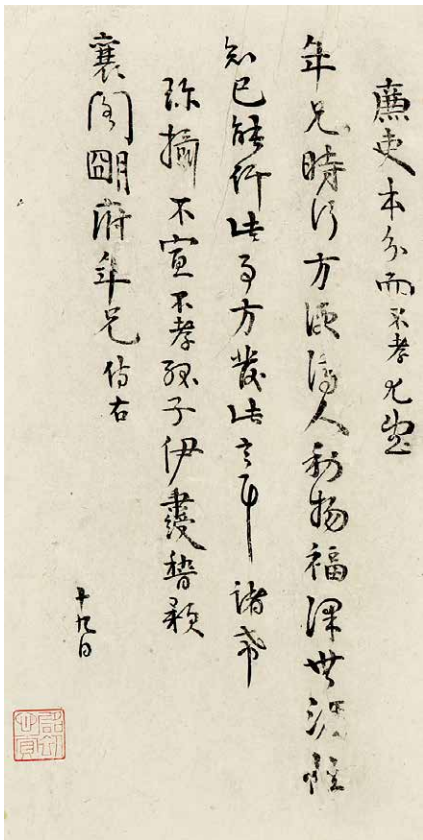 廉吏本分而不孝尤望
年兄時行方便濟人利物福澤無涯惟
知己能行此事方發此言耳諸希
珍攝不宣不孝孤子伊秉綬稽顙
襄閣明府年兄侍右
十九日